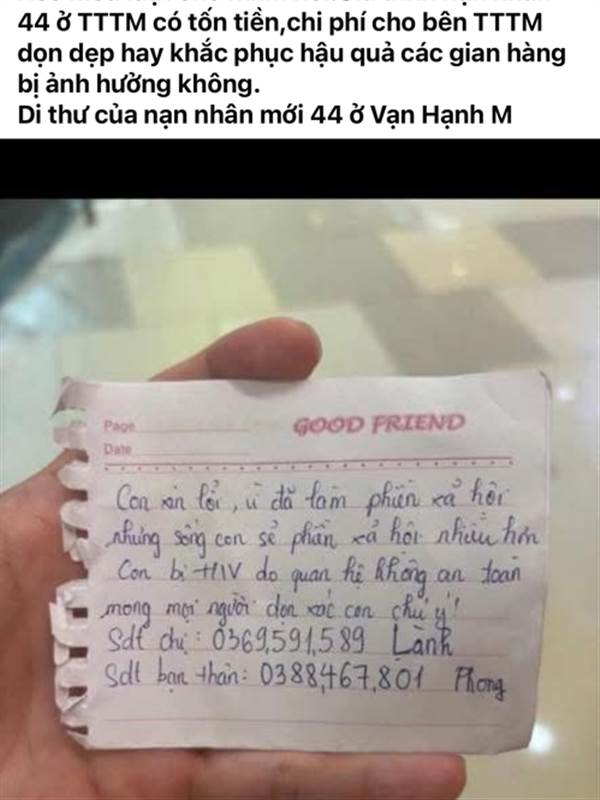 44 ở TTTM có tốn tiền,chi phí cho bên TTTM
dọn dẹp hay khắc phục hậu quả các gian hàng
bị ảnh hưởng không.
Di thư của nạn nhân mới 44 ở Vạn Hạnh M
Page
GOOD FRIEND
Date
Con xin lỗi, vì đã làm phiền xả hội
nhưng sống con sẻ phiền xả hội nhiều hơn
Con bị HIV do quan hệ không an toàn
mong mọi người dọn xác con chú ý!
Sdt chị: 0369,591,589 Lành
Sdt bạn thân: 0388,467,801 Phong